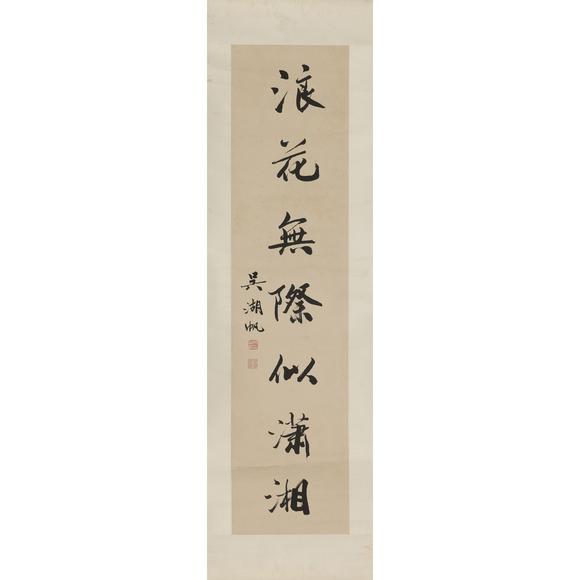 浪花無際似瀟湘
吳湖帆